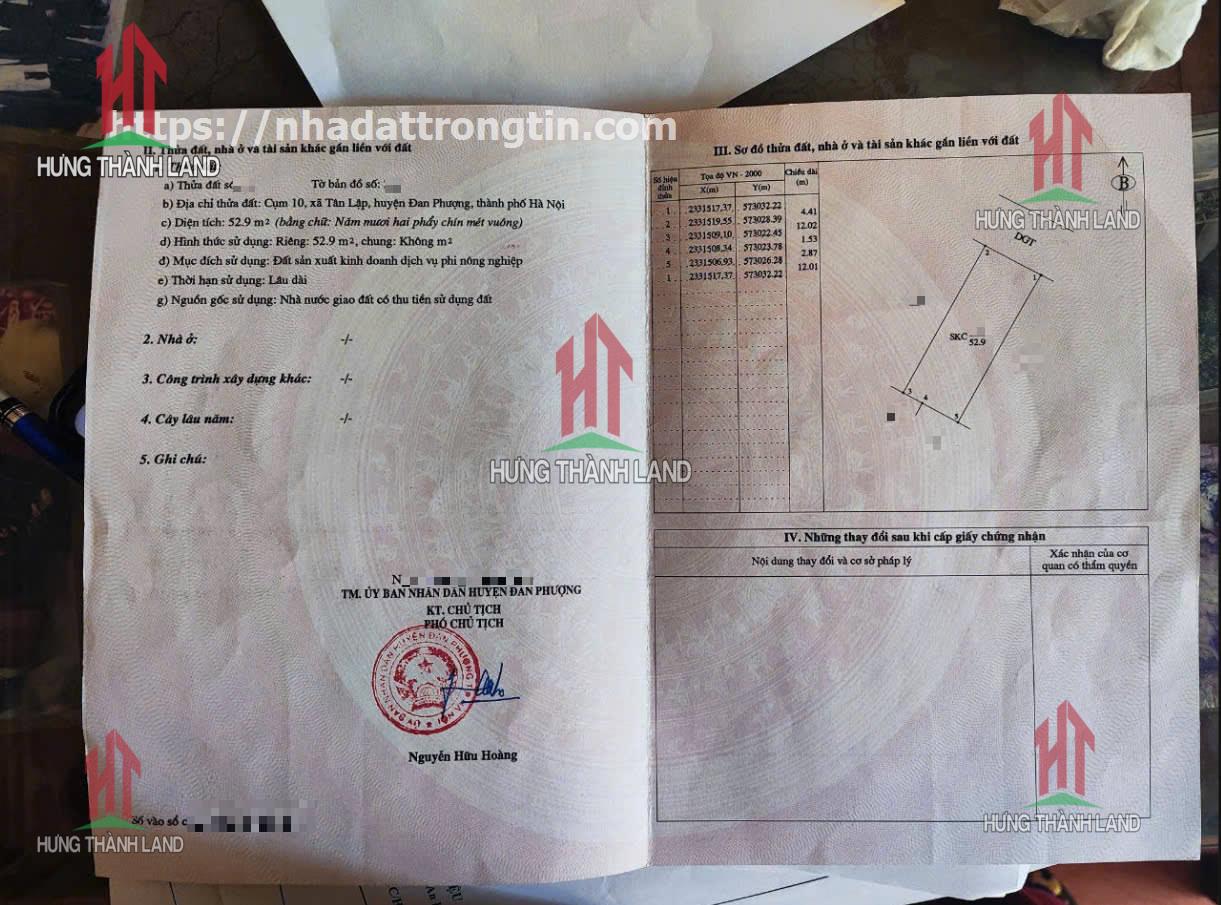 https://nhadattrongtin.com
HƯNG THÀNH LAND
II. Thửa đất, nhà ở và tài sản khác gắn liền với đất
a) Thửa đất số:
Tờ bản đồ số:
b) Địa chỉ thửa đất: Cụm 10, xã Tân Lập, huyện Đan Phượng, thành phố Hà Nội
c) Diện tích: 52.9 m² (bằng chữ: Năm mươi hai phẩy chín mét vuông)
d) Hình thức sử dụng: Riêng: 52.9 m², chung: Không m²
đ) Mục đích sử dụng: Đất sản xuất kinh doanh dịch vụ phi nông nghiệp
e) Thời hạn sử dụng: Lâu dài
g) Nguồn gốc sử dụng: Nhà nước giao đất có thu tiền sử dụng đất
2. Nhà ở: -/-
3. Công trình xây dựng khác: -/-
4. Cây lâu năm: -/-
5. Ghi chú:
HƯNG THÀNH LAND
N
TM. ỦY BAN NHÂN DÂN HUYỆN ĐAN PHƯỢNG
KT. CHỦ TỊCH
PHÓ CHỦ TỊCH
ỦY BAN NHÂN DÂN HUYỆN ĐAN PHƯỢNG
Nguyễn Hữu Hoàng
Số vào sổ
HƯNG THÀNH LAND
III. Sơ đồ thửa đất, nhà ở và tài sản khác gắn liền với đất
Số hiệu đỉnh thửa
Tọa độ VN - 2000
Chiều dài (m)
X(m) Y(m)
1 2331517.37 573032.22
4.41
2 2331519.55 573028.39
12.02
3 2331509.10 573022.45
1.53
4 2331508.34 573023.78
2.87
5 2331506.93 573026.28
12.01
1 2331517.37 573032.22
B
HƯNG THÀNH LAND
DGT
2
1
SKC
52.9
3
4
5
IV. Những thay đổi sau khi cấp giấy chứng nhận
Nội dung thay đổi và cơ sở pháp lý
Xác nhận của cơ
quan có thẩm quyền
HƯNG THÀNH LAND